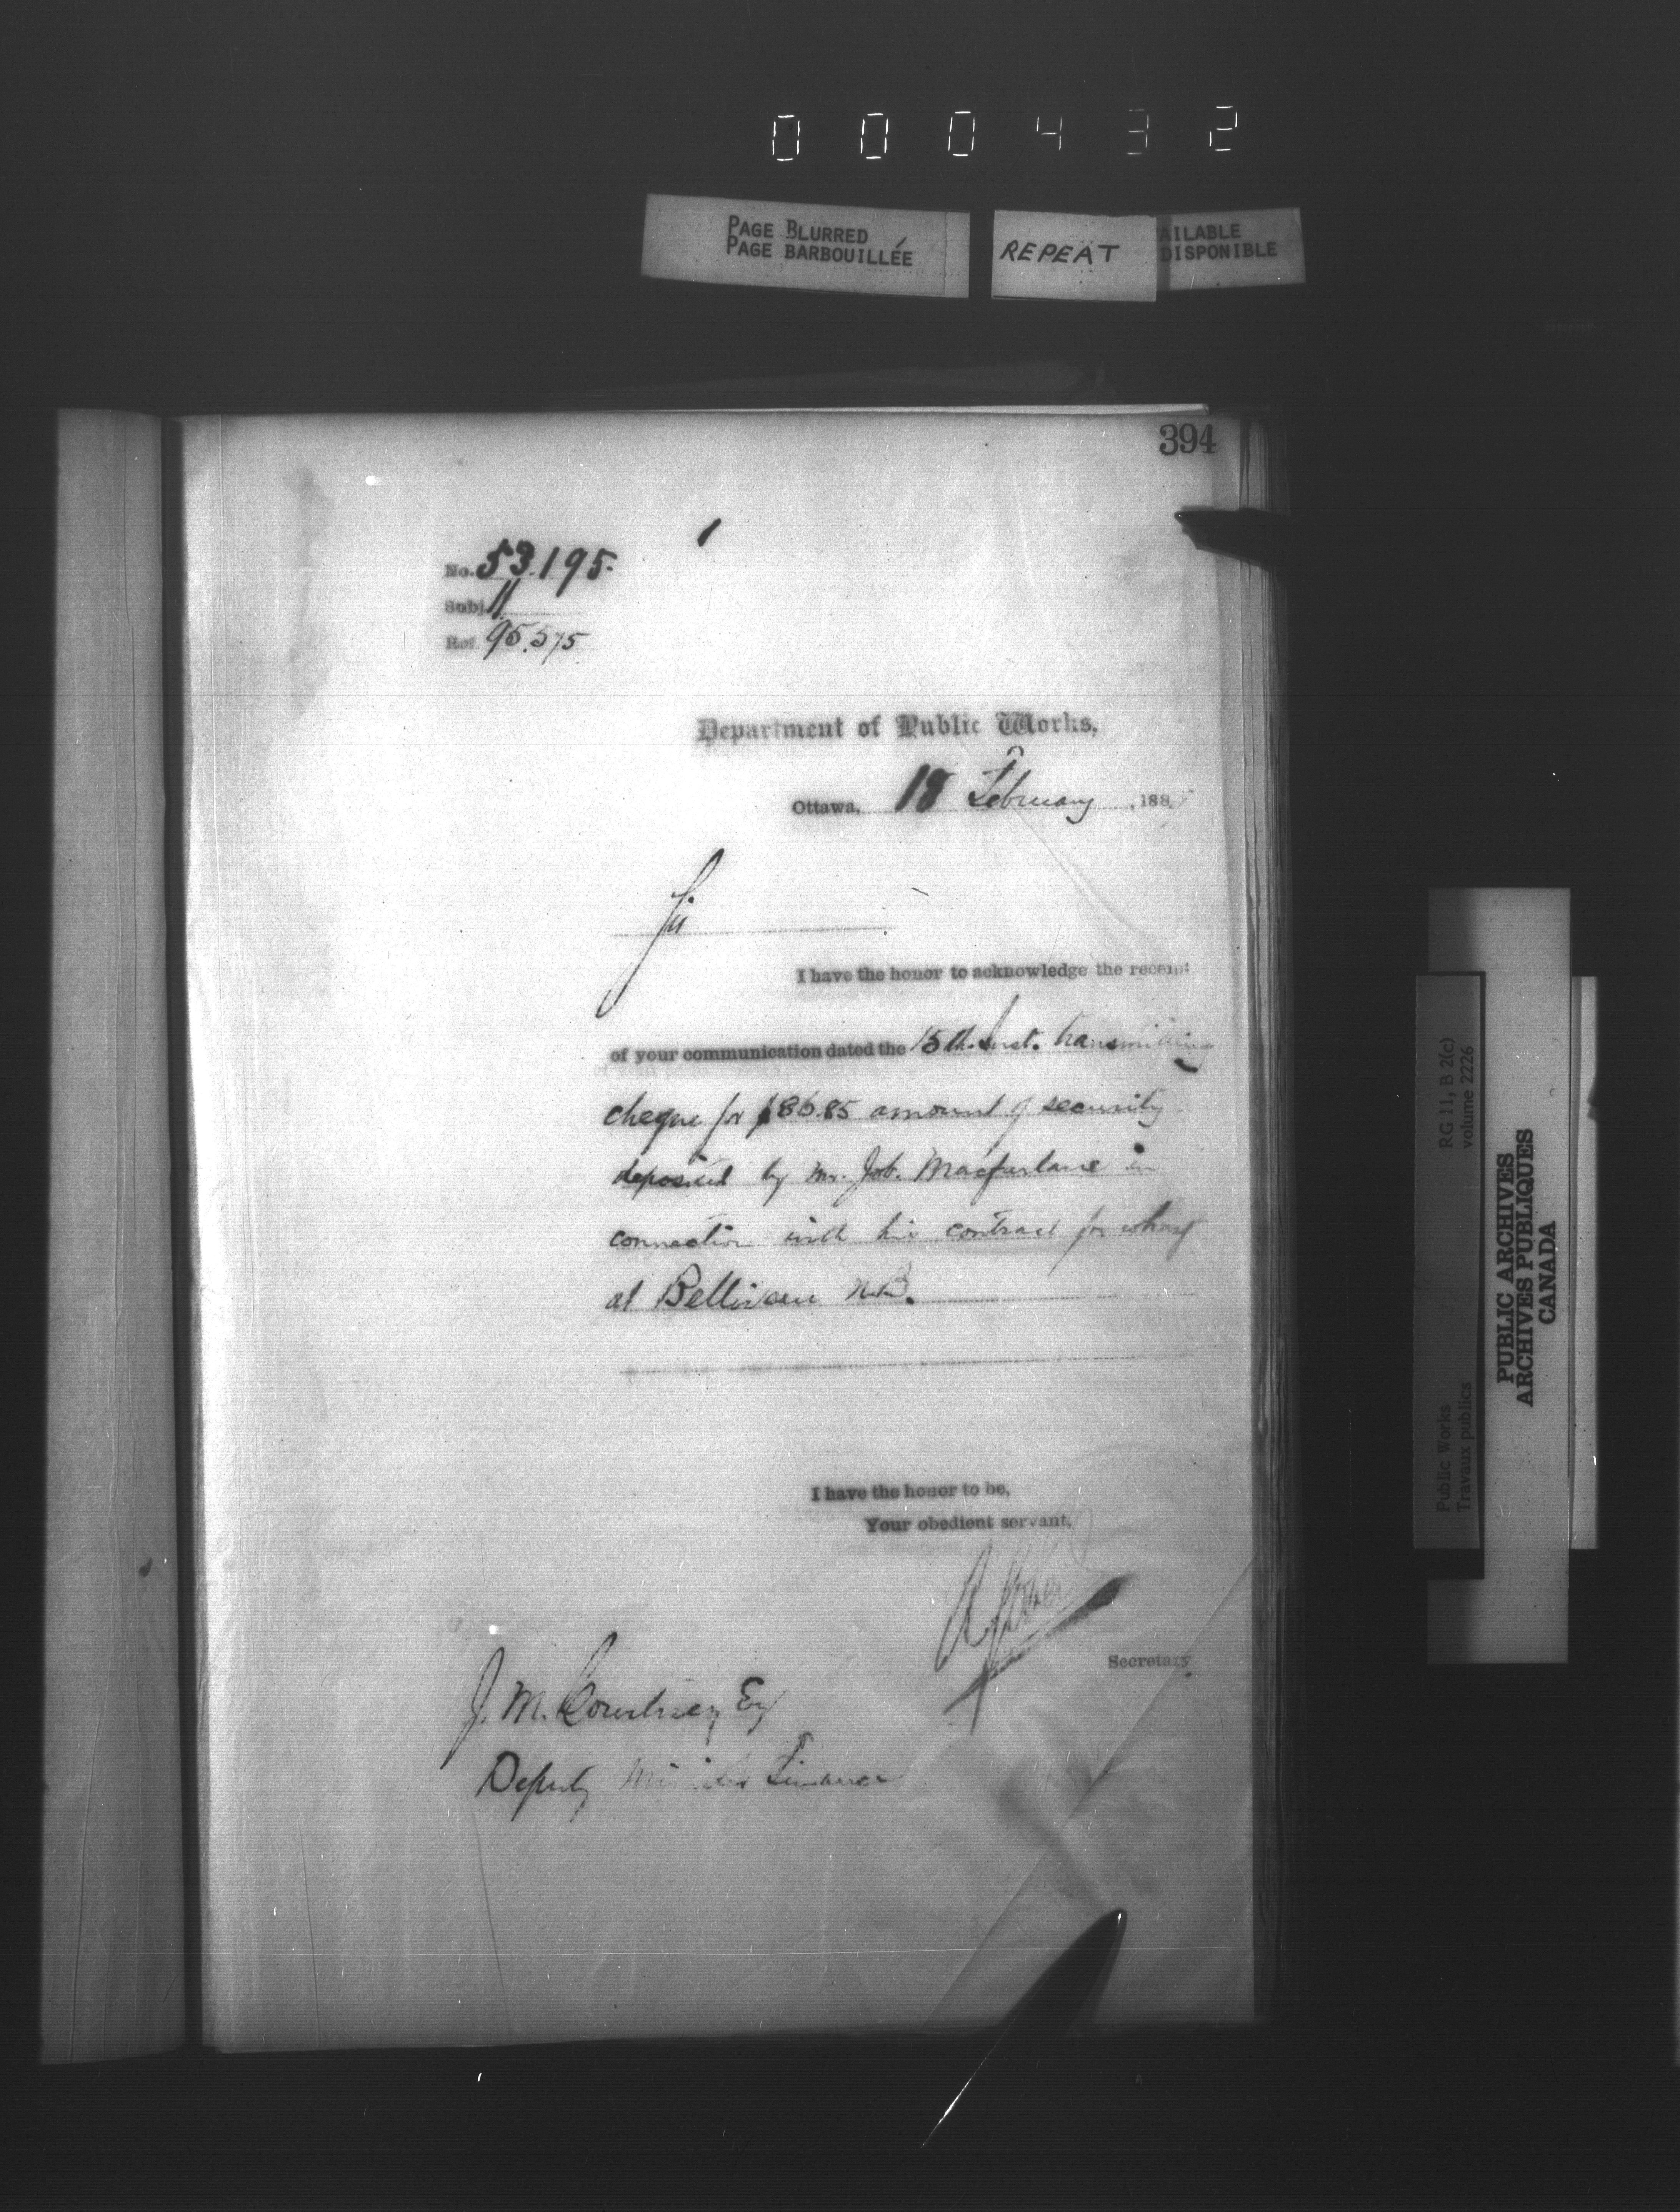 000432
PAGE BLURRED
PAGE BARBOUILLÉE
REPEAT
AILABLE
DISPONIBLE
394
No. 53.195.
Subj. 11
Ref. 95.575
Department of Public Works,
Ottawa, 18 February, 188
Sir
I have the honor to acknowledge the receipt
of your communication dated the 15th Inst. transmitting
cheque for $86.85 amount of security
deposited by Mr. Job. Macfarlane in
connection with his contract for wharf
at Belliveau N.B.
I have the honor to be,
Your obedient servant,
Secretary.
J. M. Courtney Esq
Deputy Minister Finance
RG 11, B 2(c)
volume 2226
Public Works
Travaux publics
PUBLIC ARCHIVES
ARCHIVES PUBLIQUES
CANADA